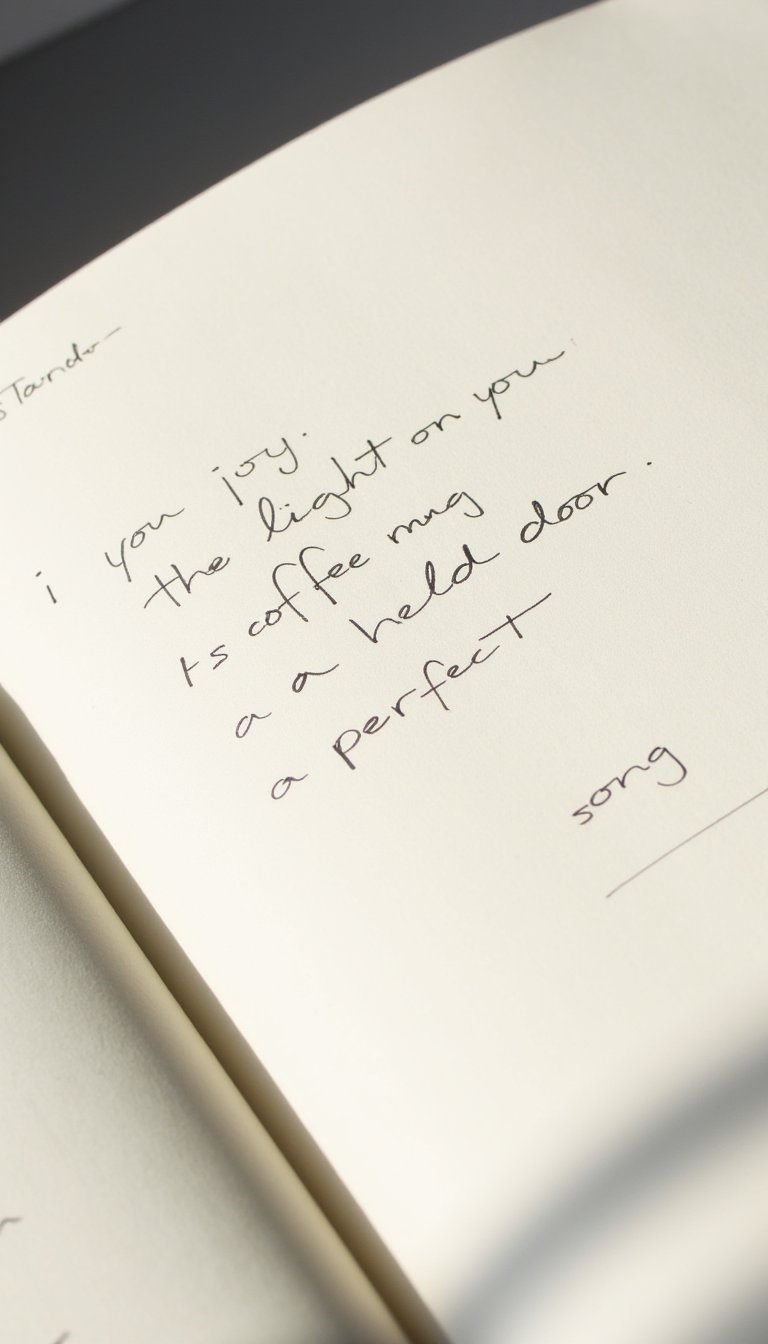 i you joy.
the light on you
ts coffee mug
a a held door.
a perfect
song